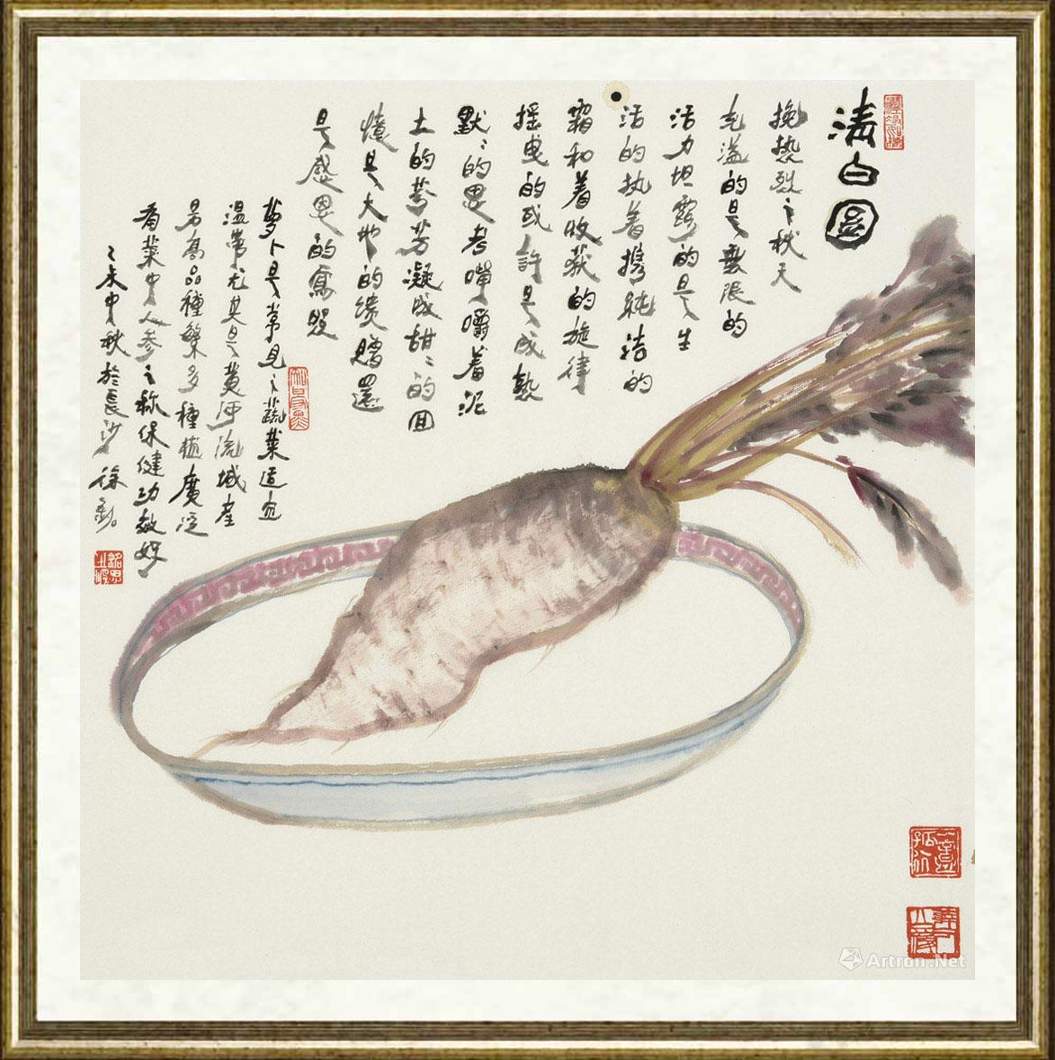 清白圖
挽热烈之秋天
充溢的是無限的
活力坦露的是生
活的执着携純洁的
霜和着收获的旋律
摇曳的或許是成熟
默〻的思考嘴嚼着泥
土的芬芳凝成甜〻的回
憶是大地的馈赠還
是感恩的寫照
萝卜是常見之蔬菜适宜
温带尤其是黄河流域産
量高品種繁多種植廣泛
有菜中人参之称保健功效好
乙未中秋於長沙徐
Artron.Net